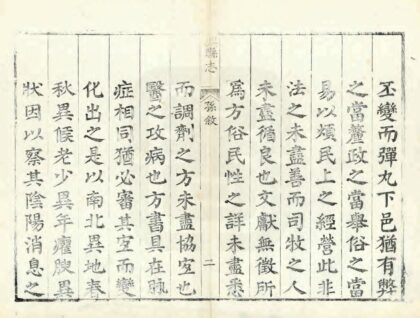 丕變而彈丸下邑猶有弊
之當釐政之當舉俗之當
易以煩民上之經營此非
法之未盡善而司牧之人
未盡循良也文獻無徵所
爲方俗民性之詳未盡悉
縣志
孫敘
二
而調劑之方未盡協宐也
醫之攻病也方書具在脈
症相同猶必審其宐而變
化出之是以南北異地春
秋異候老少異年癯腴異
狀因以察其陰陽消息之